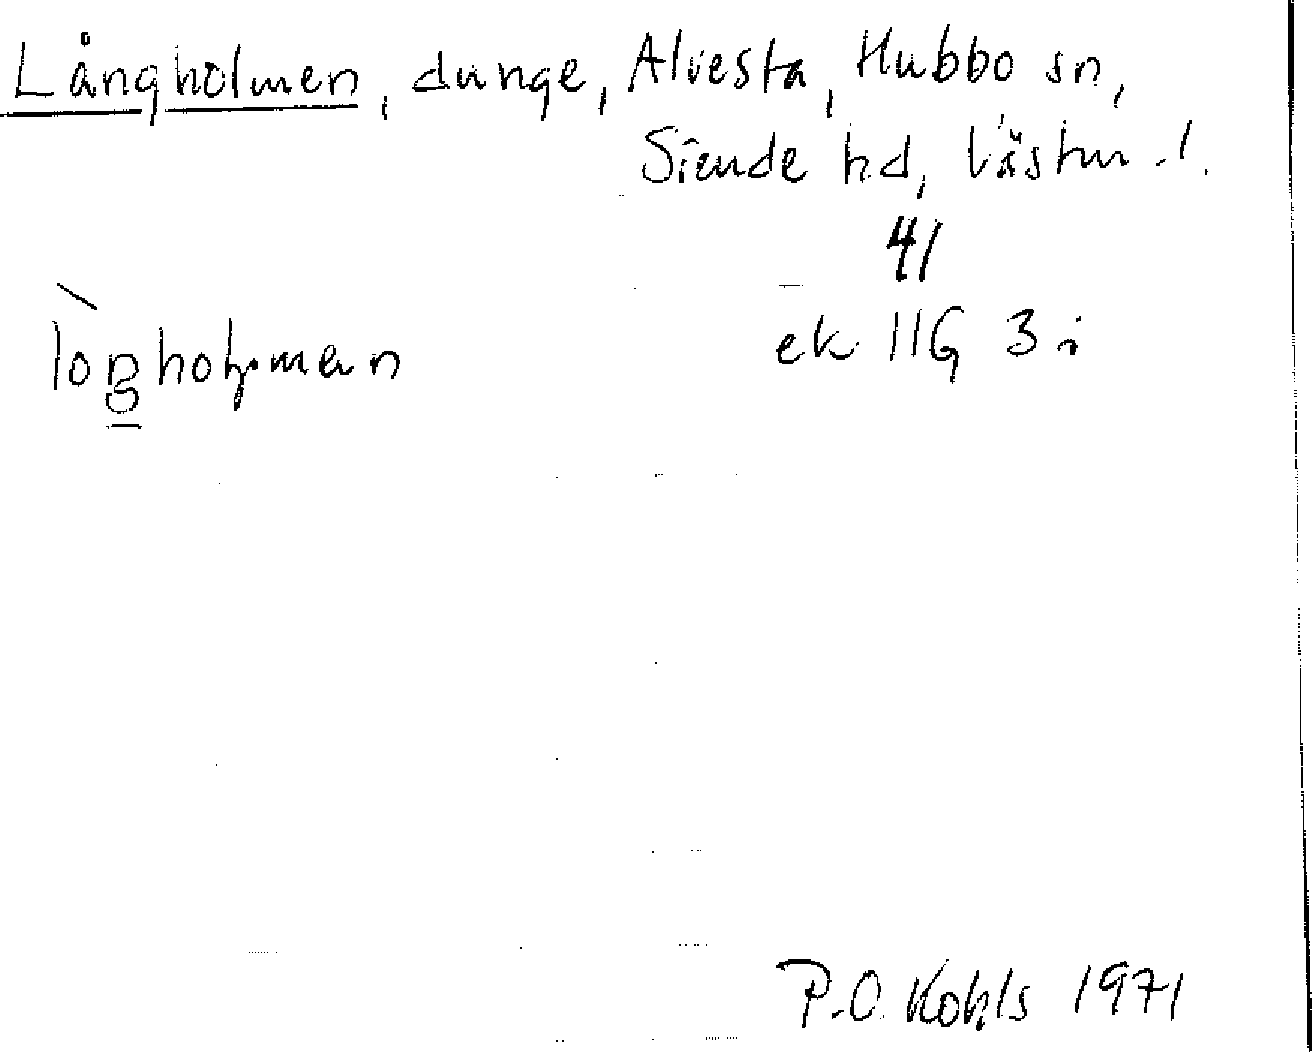 Långholmen, dunge, Alvesta, Hubbo sn,
Siende hd, Västm. l.
41
ek 11G 3 i
P.O. Kohls 1971